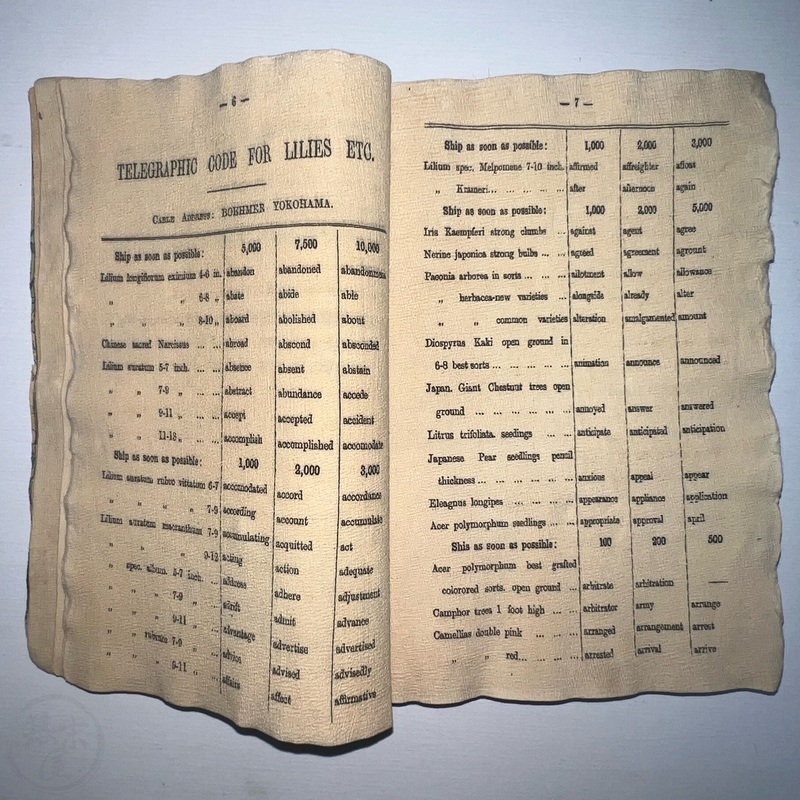 — 6 —
TELEGRAPHIC CODE FOR LILIES ETC.
CABLE ADDRESS: BOEHMER YOKOHAMA.
Ship as soon as possible: 5,000 7,500 10,000
Lilium longiflorum eximium 4-6 in. abandon abandoned abandonment
„ „ 6-8 „ abate abide able
„ „ 8-10 „ aboard abolished about
Chinese sacred Narcissus ... ... abroad abscond absconded
Lilium auratum 5-7 inch. ... ... absence absent abstain
„ „ 7-9 „ ... ... abstract abundance accede
„ „ 9-11 „ ... ... accept accepted accident
„ „ 11-13 „ ... ... accomplish accomplished accomodate
Ship as soon as possible: 1,000 2,000 3,000
Lilium auratum rubro vittatum 6-7 accomodated accord accordance
„ „ „ 7-9 according account accumulate
Lilium auratum macranthum 7-9 accumulating acquitted act
„ „ „ 9-12 acting action adequate
„ spec. album. 5-7 inch. ... address adhere adjustment
„ „ „ 7-9 „ ... adrift admit advance
„ „ „ 9-11 „ ... advantage advertise advertised
„ „ rubrum 7-9 „ ... advice advised advisedly
„ „ „ 9-11 „ ... affairs affect affirmative
— 7 —
Ship as soon as possible: 1,000 2,000 3,000
Lilium spec. Melpomene 7-10 inch. affirmed affreighter afloat
„ Krameri... ... ... ... after afternoon again
Ship as soon as possible: 1,000 2,000 5,000
Iris Kaempferi strong clumbs ... against agent agree
Nerine japonica strong bulbs ... ... agreed agreement aground
Paeonia arborea in sorts ... ... ... allotment allow allowance
„ herbacea-new varieties ... alongside already alter
„ „ common varieties alteration amalgamented amount
Diospyrus Kaki open ground in
6-8 best sorts ... ... ... ... ... animation announce announced
Japan. Giant Chestnut trees open
ground ... ... ... ... ... ... annoyed answer answered
Litrus trifoliata. seedings ... ... anticipate anticipated anticipation
Japanese Pear seedlings pencil
thickness ... ... ... ... ... ... anxious appeal appear
Eleagnus longipes ... ... ... ... appearance appliance application
Acer polymorphum seedlings ... ... appropriate approval april
Shis as soon as possible: 100 200 500
Acer polymorphum best grafted
colorored sorts. open ground ... arbitrate arbitration —
Camphor trees 1 foot high ... ... arbitrator army arrange
Camellias double pink ... ... ... arranged arrangement arrest
„ „ red... ... ... ... arrested arrival arrive